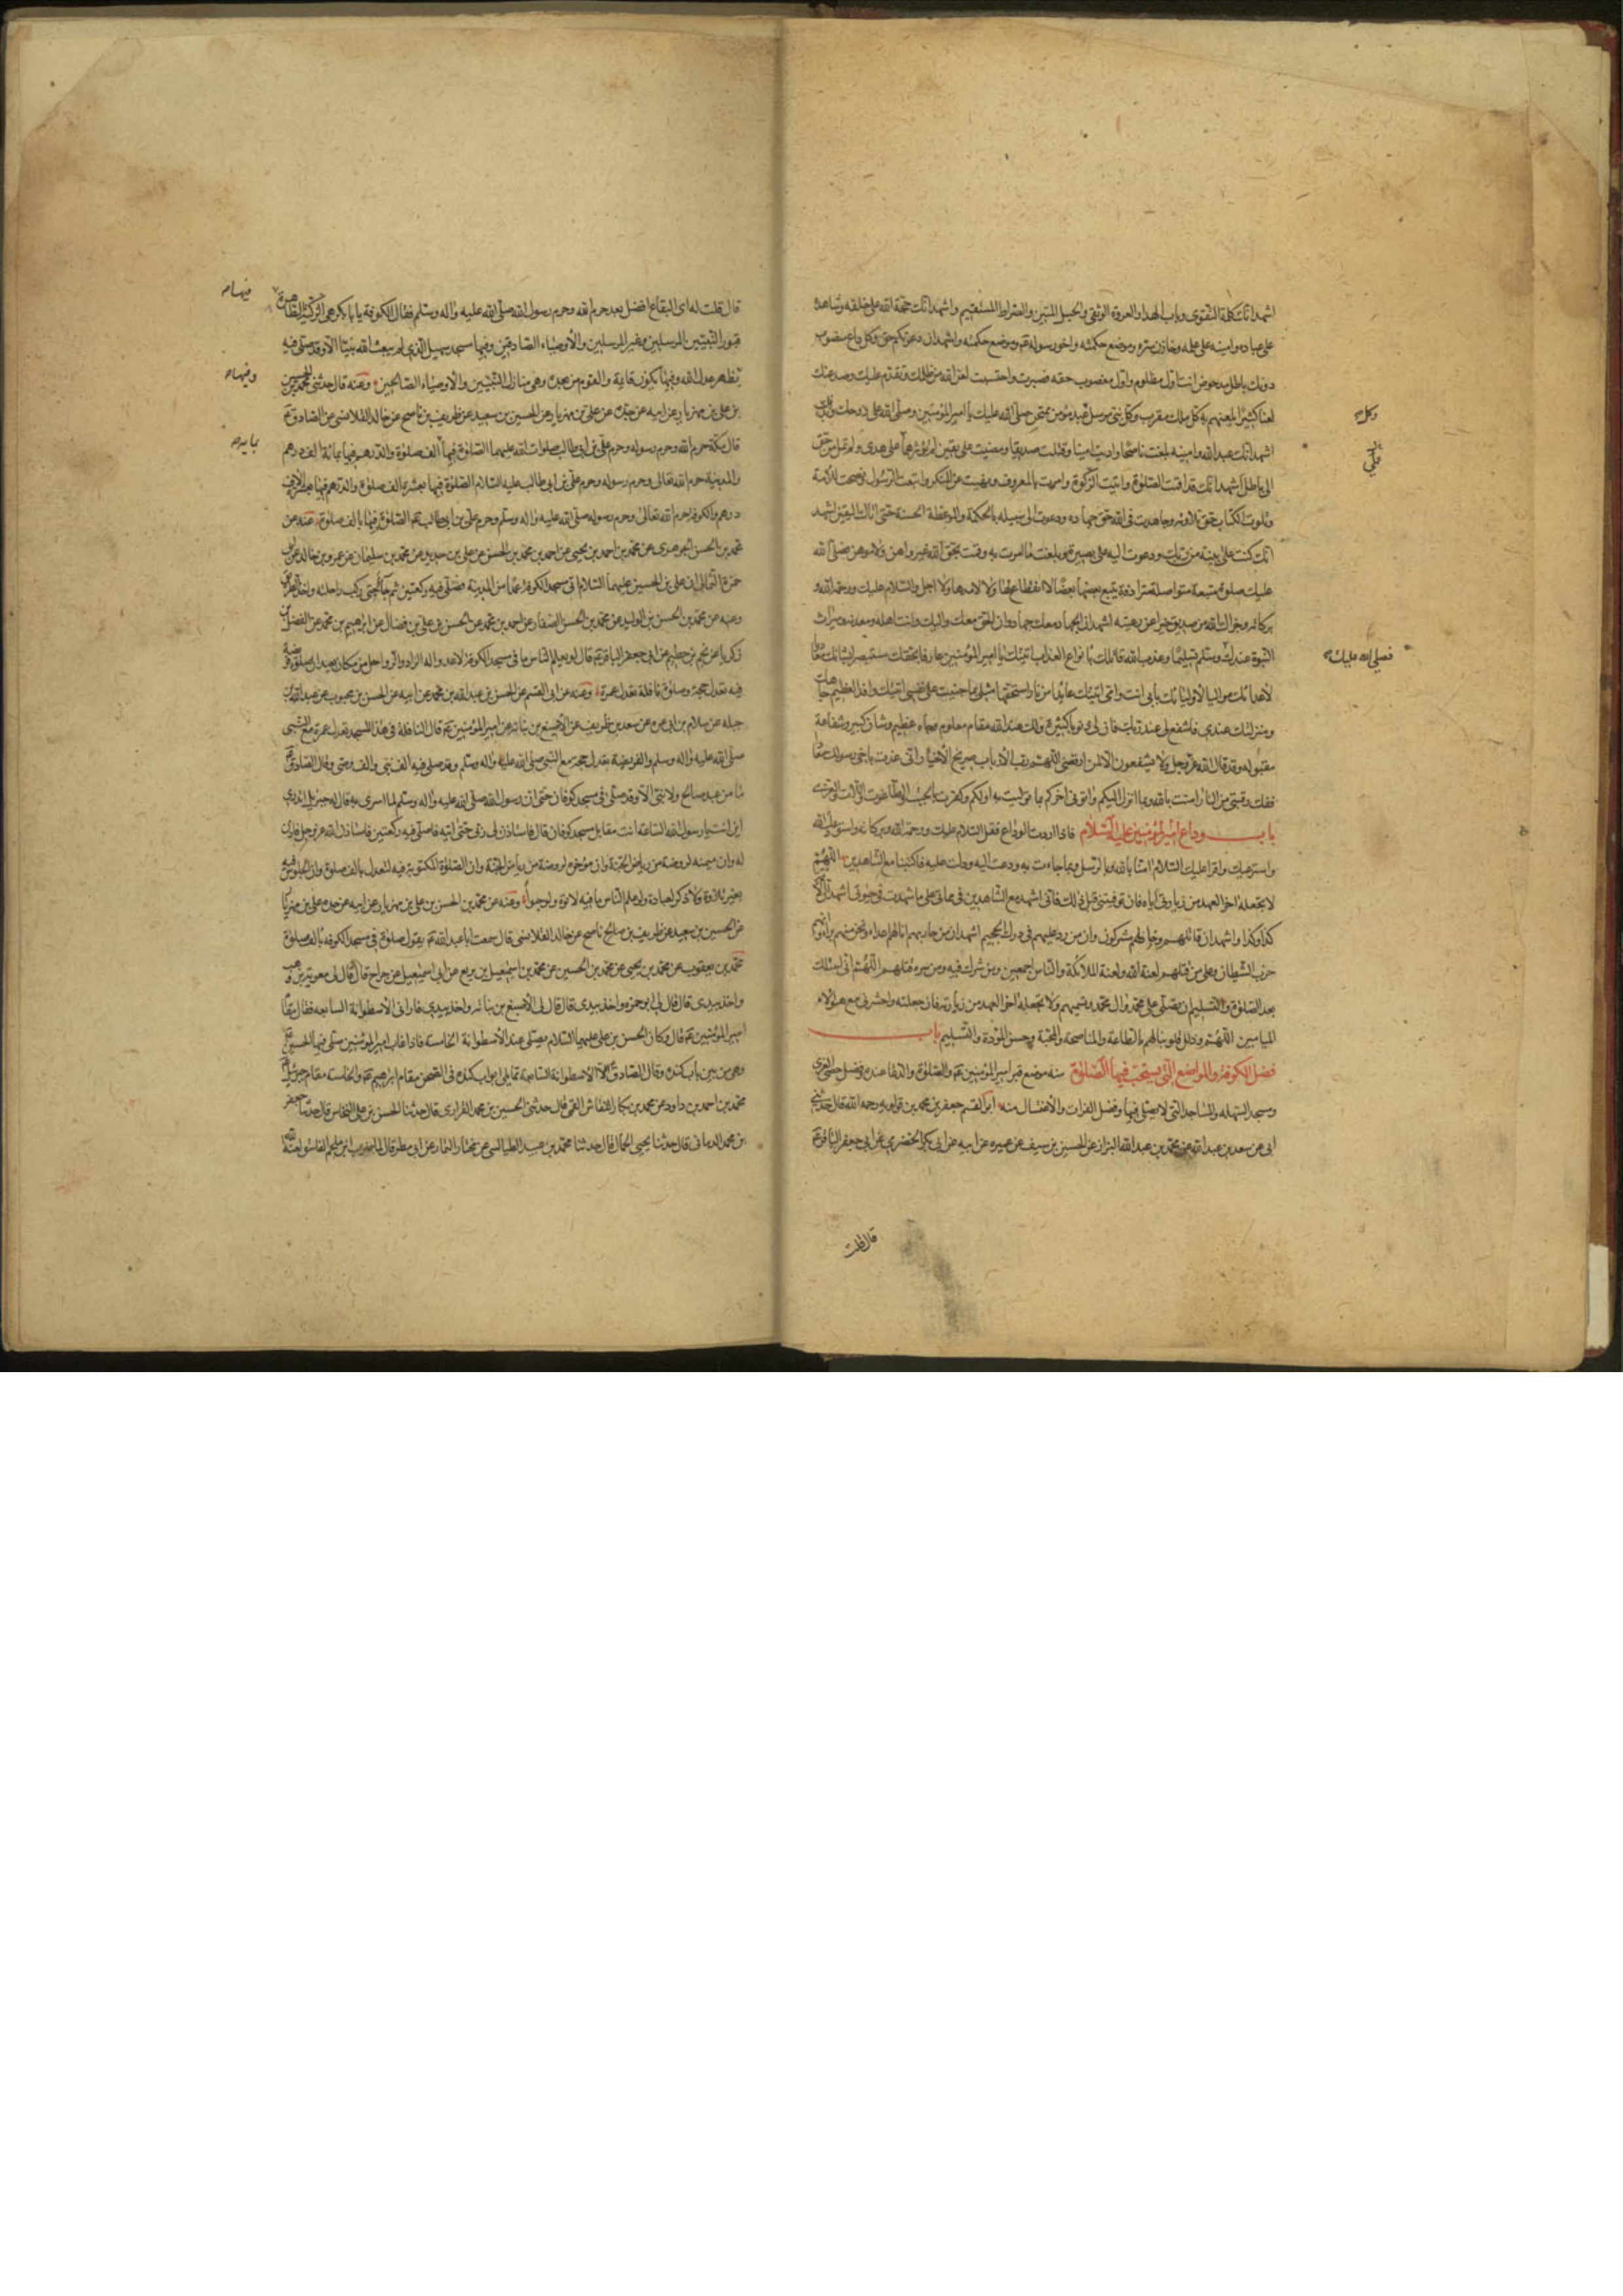 اشهد انك كلمة التقوى وباب الهدى والعروة الوثقى والحبل المتين والصراط المستقيم واشهد انك حجة الله على خلقه وشاهده
على عباده وامينه على علمه وخازن سره وموضع حكمته واخو رسوله واشهد ان دعوتكم حق وكل داع منصوب
دونك باطل مدحوض انت اول مظلوم واول مغصوب حقه فصبرت واحتسبت لعن الله من ظلمك وتقدم عليك وصد عنك
لعنا كثيرا يلعنهم به كل ملك مقرب وكل نبي مرسل وكل عبد مؤمن ممتحن صلى الله عليك يا امير المؤمنين وصلى الله على روحك وبدنك
اشهد انك عبد الله وامينه بلغت ناصحا واديت امينا وقتلت صديقا ومضيت على يقين لم تؤثر عمى على هدى ولم تمل من حق
الى باطل اشهد انك قد اقمت الصلوة واتيت الزكوة وامرت بالمعروف ونهيت عن المنكر واتبعت الرسول ونصحت للامة
وتلوت الكتاب حق تلاوته وجاهدت في الله حق جهاده ودعوت الى سبيله بالحكمة والموعظة الحسنة حتى اتاك اليقين اشهد
انك كنت على بينة من ربك ودعوت اليه على بصيرة وبلغت ما امرت به وقمت بحق الله غير واهن ولا موهن فصلى الله
عليك صلوة متبعة متواصلة مترادفة يتبع بعضها بعضا لا انقطاع لها ولا امد ولا اجل والسلام عليك ورحمة الله و
بركاته وجزاك الله من صديق خيرا عن رعيته اشهد ان الجهاد معك جهاد وان الحق معك واليك وانت اهله ومعدنه وميراث
النبوة عندك وسلم تسليما وعذب الله قاتلك بانواع العذاب اتيتك يا امير المؤمنين عارفا بحقك مستبصرا بشانك معاديا
لاعدائك مواليا لاوليائك بابي انت وامي اتيتك عائذا من نار استحقها مثلي بما جنيت على نفسي
ومنزلتك عندي فاشفع لي عند ربك فان لي ذنوبا كثيرة ولك عند الله مقام معلوم وجاه عظيم وشان كبير وشفاعة
مقبولة وقد قال الله عز وجل ولا يشفعون الا لمن ارتضى اللهم رب الارباب صريخ الاخيار اني عذت باخي رسولك معاذا
ففك رقبتي من النار امنت بالله وما انزل اليكم واتولى اخركم بما توليت به اولكم وكفرت بالجبت والطاغوت واللات والعزى
باب وداع امير المؤمنين عليه السلام فاذا اردت الوداع فقل السلام عليك ورحمة الله وبركاته استودعك الله
واسترعيك واقرا عليك السلام امنا بالله وبالرسل وبما جاءت به ودعت اليه ودلت عليه فاكتبنا مع الشاهدين اللهم
لا تجعله اخر العهد من زيارتي اياه فان توفيتني قبل ذلك فاني اشهد مع الشاهدين في مماتي على ما شهدت في حيوتي اشهد
كذا وكذا واشهد ان قاتلهم مشركون وان من رد عليهم في درك الجحيم اشهد ان من حاربهم لنا اعداء ونحن منهم براء وانهم
حزب الشيطان وعلى من قتلهم لعنة الله ولعنة الملائكة والناس اجمعين ومن شرك فيه ومن سره قتلهم اللهم اني اسئلك
بعد الصلوة والتسليم ان تصلي على محمد وال محمد وتسميهم ولا تجعله اخر العهد من زيارته فان جعلته فاحشرني مع هؤلاء
الميامين اللهم وذلل قلوبنا لهم بالطاعة والمناصحة والمحبة وحسن الموازرة والتسليم باب
فضل الكوفة والمواضع التي يستحب فيها الصلوة منه موضع قبر امير المؤمنين والصلوة والدعاء عنده وفضل
ومسجد السهلة والمساجد التي لا يصلى فيها وفضل الفرات والاغتسال منه ابو القسم جعفر بن محمد بن قولويه رحمه الله قال حدثني
ابي عن سعد بن عبد الله عن محمد بن عبد الله الرازي عن الحسين بن سيف بن عميره عن ابيه عن ابي بكر الحضرمي عن ابي جعفر الباقر
قال قلت
وكل
فصلى الله عليك
قال قلت له اى البقاع افضل بعد حرم الله وحرم رسول الله صلى الله عليه واله وسلم فقال الكوفة يا بابكر هي الزكية الطاهرة
قبور النبيين المرسلين وغير المرسلين والاوصياء الصادقين وفيها مسجد سهيل الذي لم يبعث الله نبيا الا وقد صلى فيه
يظهر عدل الله وفيها يكون قائمه والقوام من بعده وهي منازل النبيين والاوصياء الصالحين وعنه قال حدثني محمد بن الحسين
بن علي بن مهزيار عن ابيه عن جده عن علي بن مهزيار عن الحسين بن سعيد عن ظريف بن ناصح عن خالد القلانسي عن الصادق
قال مكة حرم الله وحرم رسوله وحرم علي بن ابي طالب صلوات الله عليهما الصلوة فيها بمائة الف صلوة والدرهم فيها بمائة الف درهم
والمدينة حرم الله تعالى وحرم رسوله وحرم علي بن ابي طالب عليه السلام الصلوة فيها بعشرة الف صلوة والدرهم فيها بعشرة الاف
درهم والكوفة حرم الله تعالى وحرم رسوله صلى الله عليه واله وسلم وحرم علي بن ابي طالب الصلوة فيها بالف صلوة وعنه عن
محمد بن الحسن الجوهري عن محمد بن احمد بن يحيى عن احمد بن محمد بن الحسن عن علي بن حديد عن محمد بن سليمان عن عمرو بن خالد عن ابي
حمزة الثمالي ان علي بن الحسين عليهما السلام اتى مسجد الكوفة عمدا من المدينة فصلى فيه ركعتين ثم جاء حتى ركب راحلته واخذ الطريق
وعنه عن محمد بن الحسن بن الوليد عن محمد بن الحسن الصفار عن احمد بن محمد عن الحسن بن علي بن فضال عن ابراهيم بن محمد عن الفضل بن
زكريا عن نجم بن حطيم عن ابي جعفر الباقر قال لو يعلم الناس ما في مسجد الكوفة لاعدوا له الزاد والرواحل من مكان بعيد ان صلوة فريضة
فيه تعدل حجة وصلوة نافلة تعدل عمرة وعنه عن ابي القسم عن الحسن بن عبد الله بن محمد عن ابيه عن الحسن بن محبوب عن عبد الله بن
جبلة عن سلام بن ابي عمرة عن سعد بن ظريف عن الاصبغ بن نباته عن امير المؤمنين قال النافلة في هذا المسجد تعدل عمرة مع النبي
صلى الله عليه واله وسلم والفريضة تعدل حجة مع النبي صلى الله عليه واله وسلم وقد صلى فيه الف نبي والف وصي وقال الصادق
ما من عبد صالح ولا نبي الا وقد صلى في مسجد كوفان حتى ان رسول الله صلى الله عليه واله وسلم لما اسرى به قال له جبرئيل اتدري
اين انت يا رسول الله الساعة انت مقابل مسجد كوفان قال فاستاذن لي ربي حتى اتيه فاصلي فيه ركعتين فاستاذن الله عز وجل فاذن
له وان ميمنه لروضة من رياض الجنة وان مؤخره لروضة من رياض الجنة وان الصلوة المكتوبة فيه لتعدل بالف صلوة وان الجلوس فيه
بغير تلاوة ولا ذكر لعبادة ولو علم الناس ما فيه لاتوه ولو حبوا وعنه عن محمد بن الحسن بن علي بن مهزيار عن ابيه عن جده علي بن مهزيار
عن الحسين بن سعيد عن ظريف بن ناصح عن خالد القلانسي قال سمعت ابا عبد الله يقول صلوة في مسجد الكوفة بالف صلوة
محمد بن يعقوب عن محمد بن يحيى عن محمد بن الحسين عن محمد بن اسمعيل بن بزيع عن ابي اسمعيل السراج قال قال لي معوية بن وهب
واخذ بيدي قال قال لي ابو حمزة واخذ بيدي قال قال لي الاصبغ بن نباته واخذ بيدي فاراني الاسطوانة السابعة فقال هذا مقام
امير المؤمنين قال وكان الحسن بن علي عليهما السلام يصلي عند الاسطوانة الخامسة فاذا غاب امير المؤمنين صلى فيها الحسن
وهي من بين باب كنده وقال الصادق الاسطوانة السابعة مما يلي ابواب كنده في الصحن مقام ابراهيم والخامسة مقام جبرئيل
محمد بن احمد بن داود عن محمد بن بكار النقاش القمي قال حدثني الحسين بن محمد الفزاري قال حدثنا الحسن بن علي النخاس قال حدثنا جعفر
بن محمد الرماني قال حدثنا يحيى الحماني قال حدثنا محمد بن عبيد الطيالسي عن مختار التمار عن ابي مطر قال لما ضرب ابن ملجم الفاسق لعنه الله
فيها
وفيها
بمائة